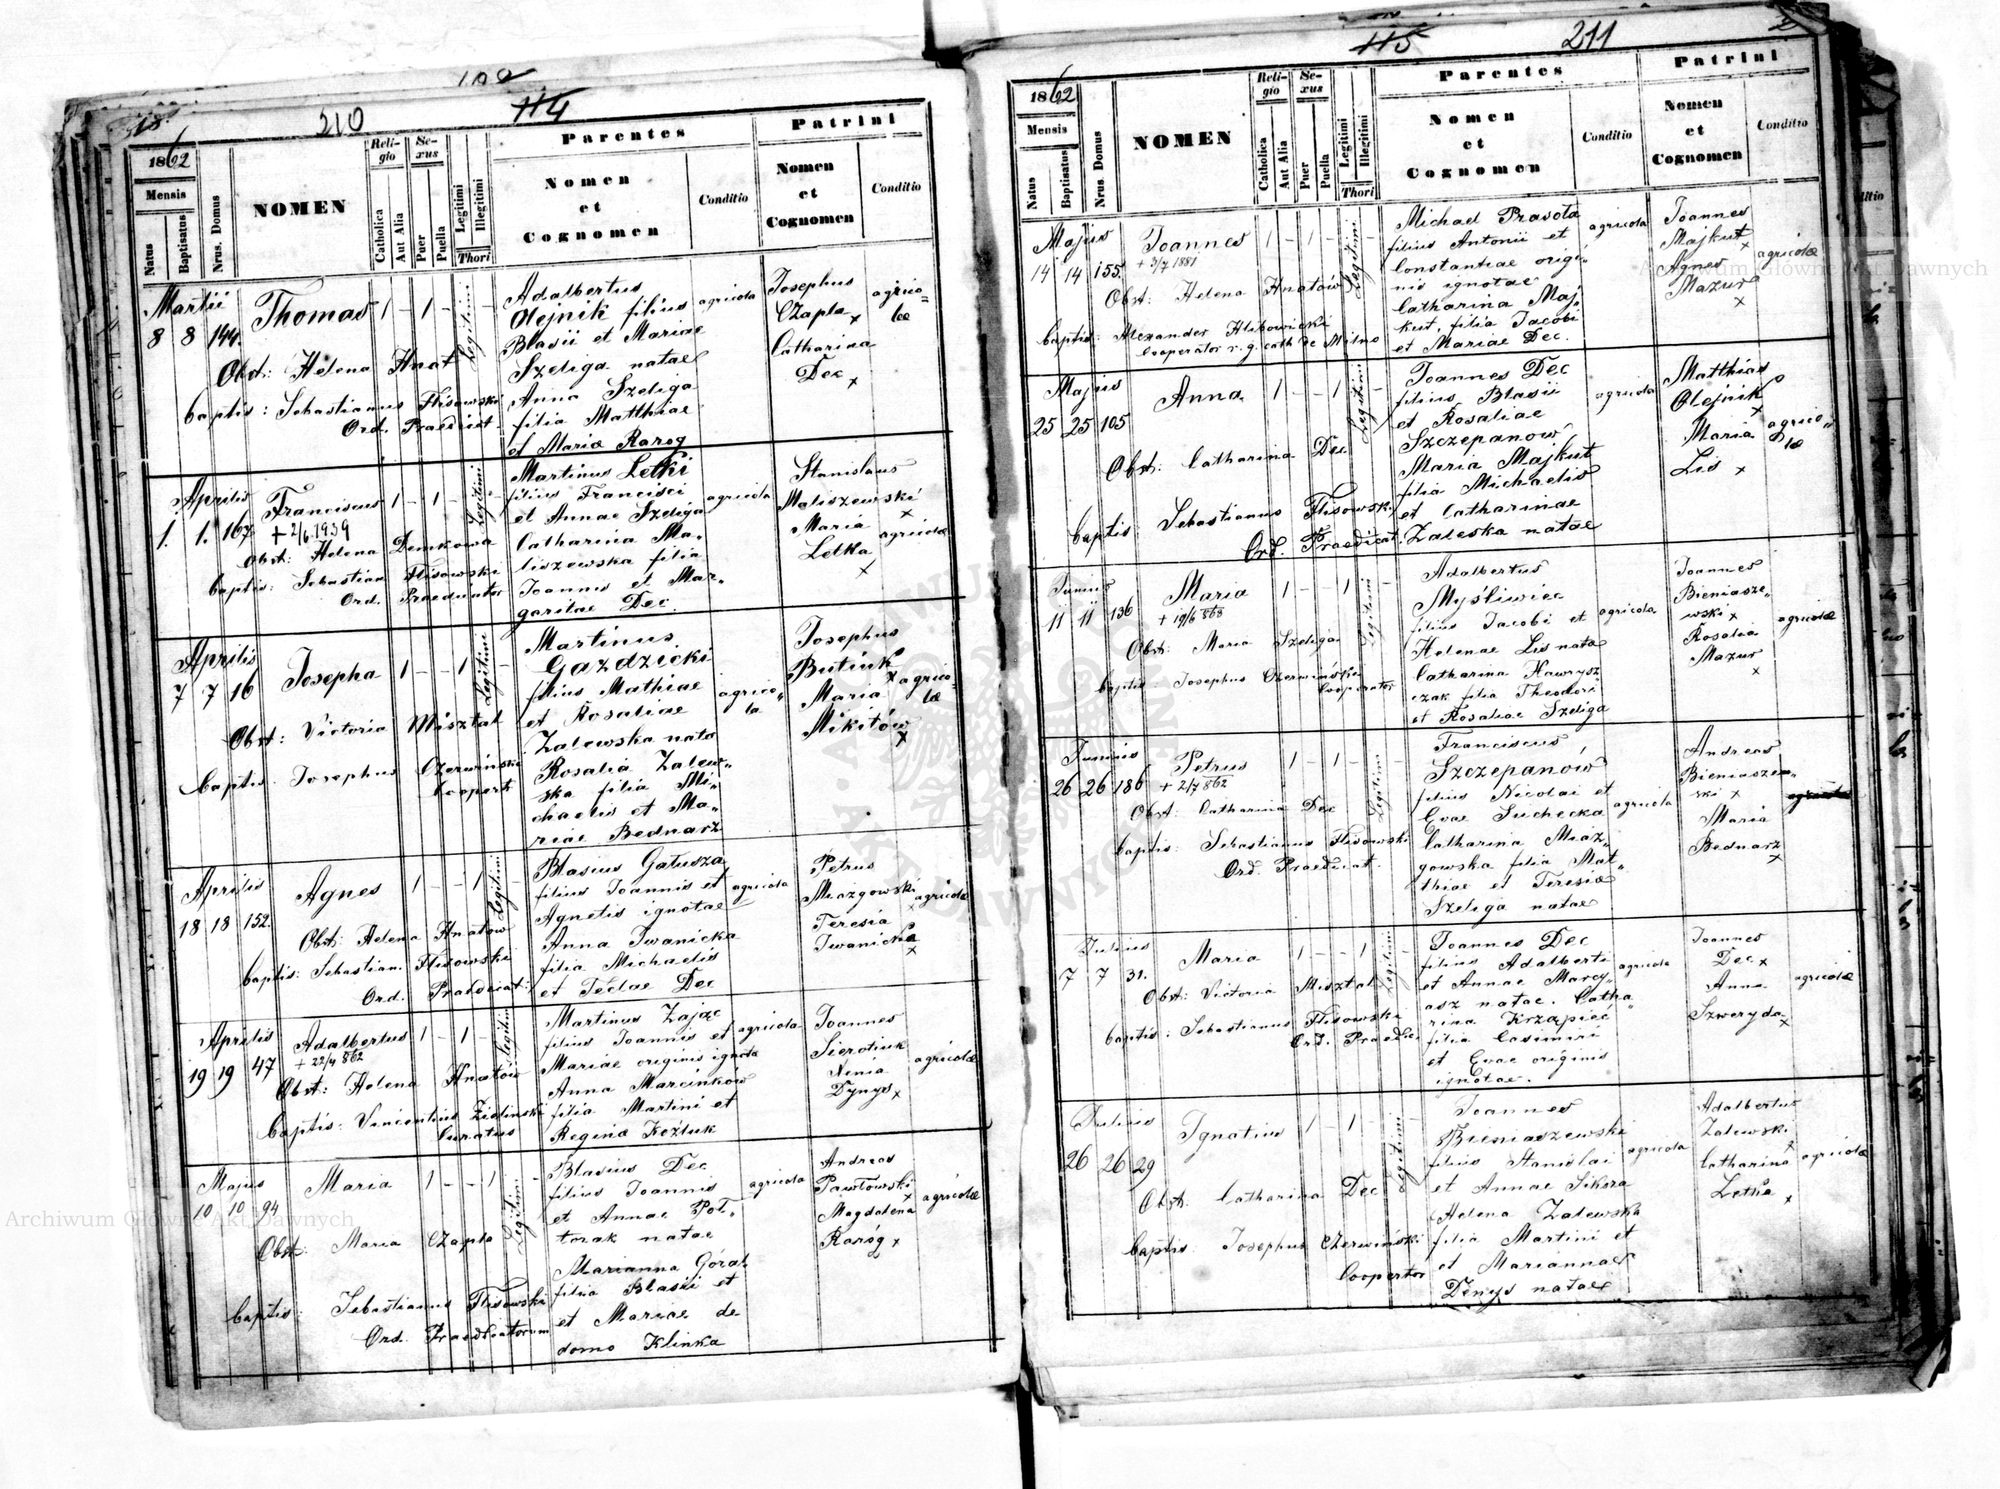 210
114
1862
Mensis
Natus
Baptisatus
Nrus. Domus
NOMEN
Reli-
gio
Catholica
Aut Alia
Se-
xus
Puer
Puella
Legitimi
Illegitimi
Thori
Parentes
Nomen
et
Cognomen
Conditio
Patrini
Nomen
et
Cognomen
Conditio
Martii
8 8 144.
Thomas
1 - 1 -
Legitimi
Obst: Helena Hnat
baptis: Sebastianus Flisowski
Ord. Praedicat.
Adalbertus
Olejnik filius
Blasii et Mariae
Szeliga natae
Anna Szeliga
filia Matthiae
et Mariae Raróg
agricola
Josephus
Czapla x
Catharina
Dec x
agrico=
lae
Aprilis
1. 1. 167
Franciscus
+ 2/6 1939
1 - 1 -
Legitimi
Obst: Helena Demkowa
baptis: Sebastian Flisowski
Ord. Praedicator
Martinus Letki
filius Francisci
et Annae Szeliga
Catharina Ma„
liszewska filia
Joannis et Mar„
garitae Dec.
agricola
Stanislaus
Maliszewski
x
Maria
Letka
x
agricolae
Aprilis
7 7 16
Josepha
1 - - 1
Legitimi
Obst: Victoria Misztal
baptis. Josephus Czerwiński
Coopert
Martinus
Gazdzicki
filius Mathiae
et Rosaliae
Zalewska nata
Rosalia Zalew„
ska filia Mi„
chaelis et Ma„
riae Bednarz
agrico„
la
Josephus
Butiuk
x
Maria
Mikitów
x
agrico„
lae
Aprilis
18 18 152.
Agnes
1 - - 1
Legitimi
Obst: Helena Hnatow
baptis: Sebastian. Flisowski
Ord. Praedicat:
Blasius Gałusza
filius Joannis et
Agnetis ignotae
Anna Iwanicka
filia Michaelis
et Teclae Dec
agricola
Petrus
Miazgowski
x
Teresia
Iwanicka
x
agricolae
Aprilis
19 19 47
Adalbertus
+ 22/4 862
1 - 1 -
Legitimi
Obst: Helena Hnatów
baptis: Vincentius Zieliński
Curatus
Martinus Zając
filius Joannis et
Mariae originis ignota
Anna Marcinków
filia Martini et
Regina Koźluk
agricola
Joannes
Sierotiuk
Xenia
Dynys x
agricolae
Majus
10 10 94
Maria
1 - - 1
Legitimi
Obst: Maria Czapla
baptis: Sebastianus Flisowski
Ord. Praedicatorum
Blasius Dec
filius Joannis
et Annae Poł„
torak natae
Marianna Góral
filia Blasii et
et Mariae de
domo Klinka
agricola
Andreas
Pawłowski
x
Magdalena
Raróg x
agricolae
115
211
1862
Mensis
Natus
Baptisatus
Nrus. Domus
NOMEN
Reli-
gio
Catholica
Aut Alia
Se-
xus
Puer
Puella
Legitimi
Illegitimi
Thori
Parentes
Nomen
et
Cognomen
Conditio
Patrini
Nomen
et
Cognomen
Conditio
Majus
14 14 155
Joannes
+ 3/7 1881
1 - 1 -
Legitimi
Obst: Helena Hnatów
baptis: Alexander Hlibowicki
Cooperator r. g. cath de Milno
Michael Prasota
filius Antonii et
Constantiae origi„
nis ignotae
Catharina Maj„
kut, filia Jacobi
et Mariae Dec.
agricola
Joannes
Majkut
x
Agnes
Mazur
x
agricolae
Majus
25 25 105
Anna
1 - - 1
Legitimi
Obst: Catharina Dec
baptis: Sebastianus Flisowski
Ord. Praedicat.
Joannes Dec
filius Blasii
et Rosaliae
Szczepanów
Maria Majkut
filia Michaelis
et Catharinae
Zaleska natae
agricola
Matthias
Olejnik
x
Maria
Lis x
agrico„
lae
Junius
11 11 136
Maria
+ 19/6 868
1 - - 1
Legitimi
Obst: Maria Szeliga
baptis: Josephus Czerwiński
Cooperator
Adalbertus
Myśliwiec
filius Jacobi et
Helenae Lis nata
Catharina Hawrysz
czak filia Theodori
et Rosaliae Szeliga
agricola
Joannes
Bieniasze„
wski x
Rosalia
Mazur
x
agricolae
Junius
26 26 186
Petrus
+ 2/7 862
1 - 1 -
Legitimi
Obst: Catharina Dec
baptis: Sebastianus Flisowski
Ord. Praedicat.
Franciscus
Szczepanów
filius Nicolai et
Evae Suchecka
Catharina Miaz„
gowska filia Mat„
thiae et Teresiae
Szeliga natae
agricola
Andreas
Bieniaszew„
ski x
Maria
Bednarz
x
agricolae
Julius
7 7 31.
Maria
1 - - 1
Legitimi
Obst: Victoria Misztal
baptis: Sebastianus Flisowski
Ord. Praedic.
Joannes Dec
filius Adalberti
et Annae Marcy„
asz natae. Catha„
rina Krząpieć
filia Casimiri
et Evae originis
ignotae.
agricola
Joannes
Dec x
Anna
Szweryda
x
agricolae
Julius
26 26 29
Ignatius
1 1
Legitimi
Obst. Catharina Dec
baptis: Josephus Czerwiński
Coopertor
Joannes
Bieniaszewski
filius Stanislai
et Annae Sikora
Helena Zalewska
filia Martini et
et Mariannae
Denys natae
agricola
Adalbertus
Zalewski
x
Catharina
Letka
x
agricolae
Archiwum Główne Akt Dawnych
Archiwum Główne Akt Dawnych